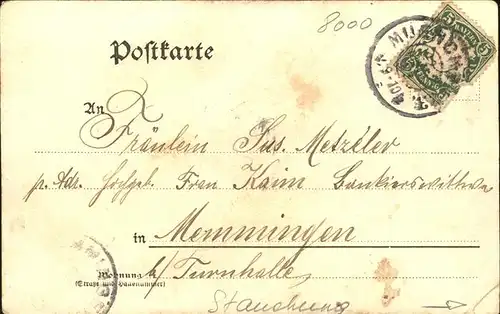 8000
Postkarte
MÜ
5
5
An
Fräulein Sus. Metzeler
p. Adr. Hochgeb. Frau Kaim Bankierswittwe
in Memmingen
Wohnung b/ Turnhalle
(Straße und Hausnummer)
Stauchung